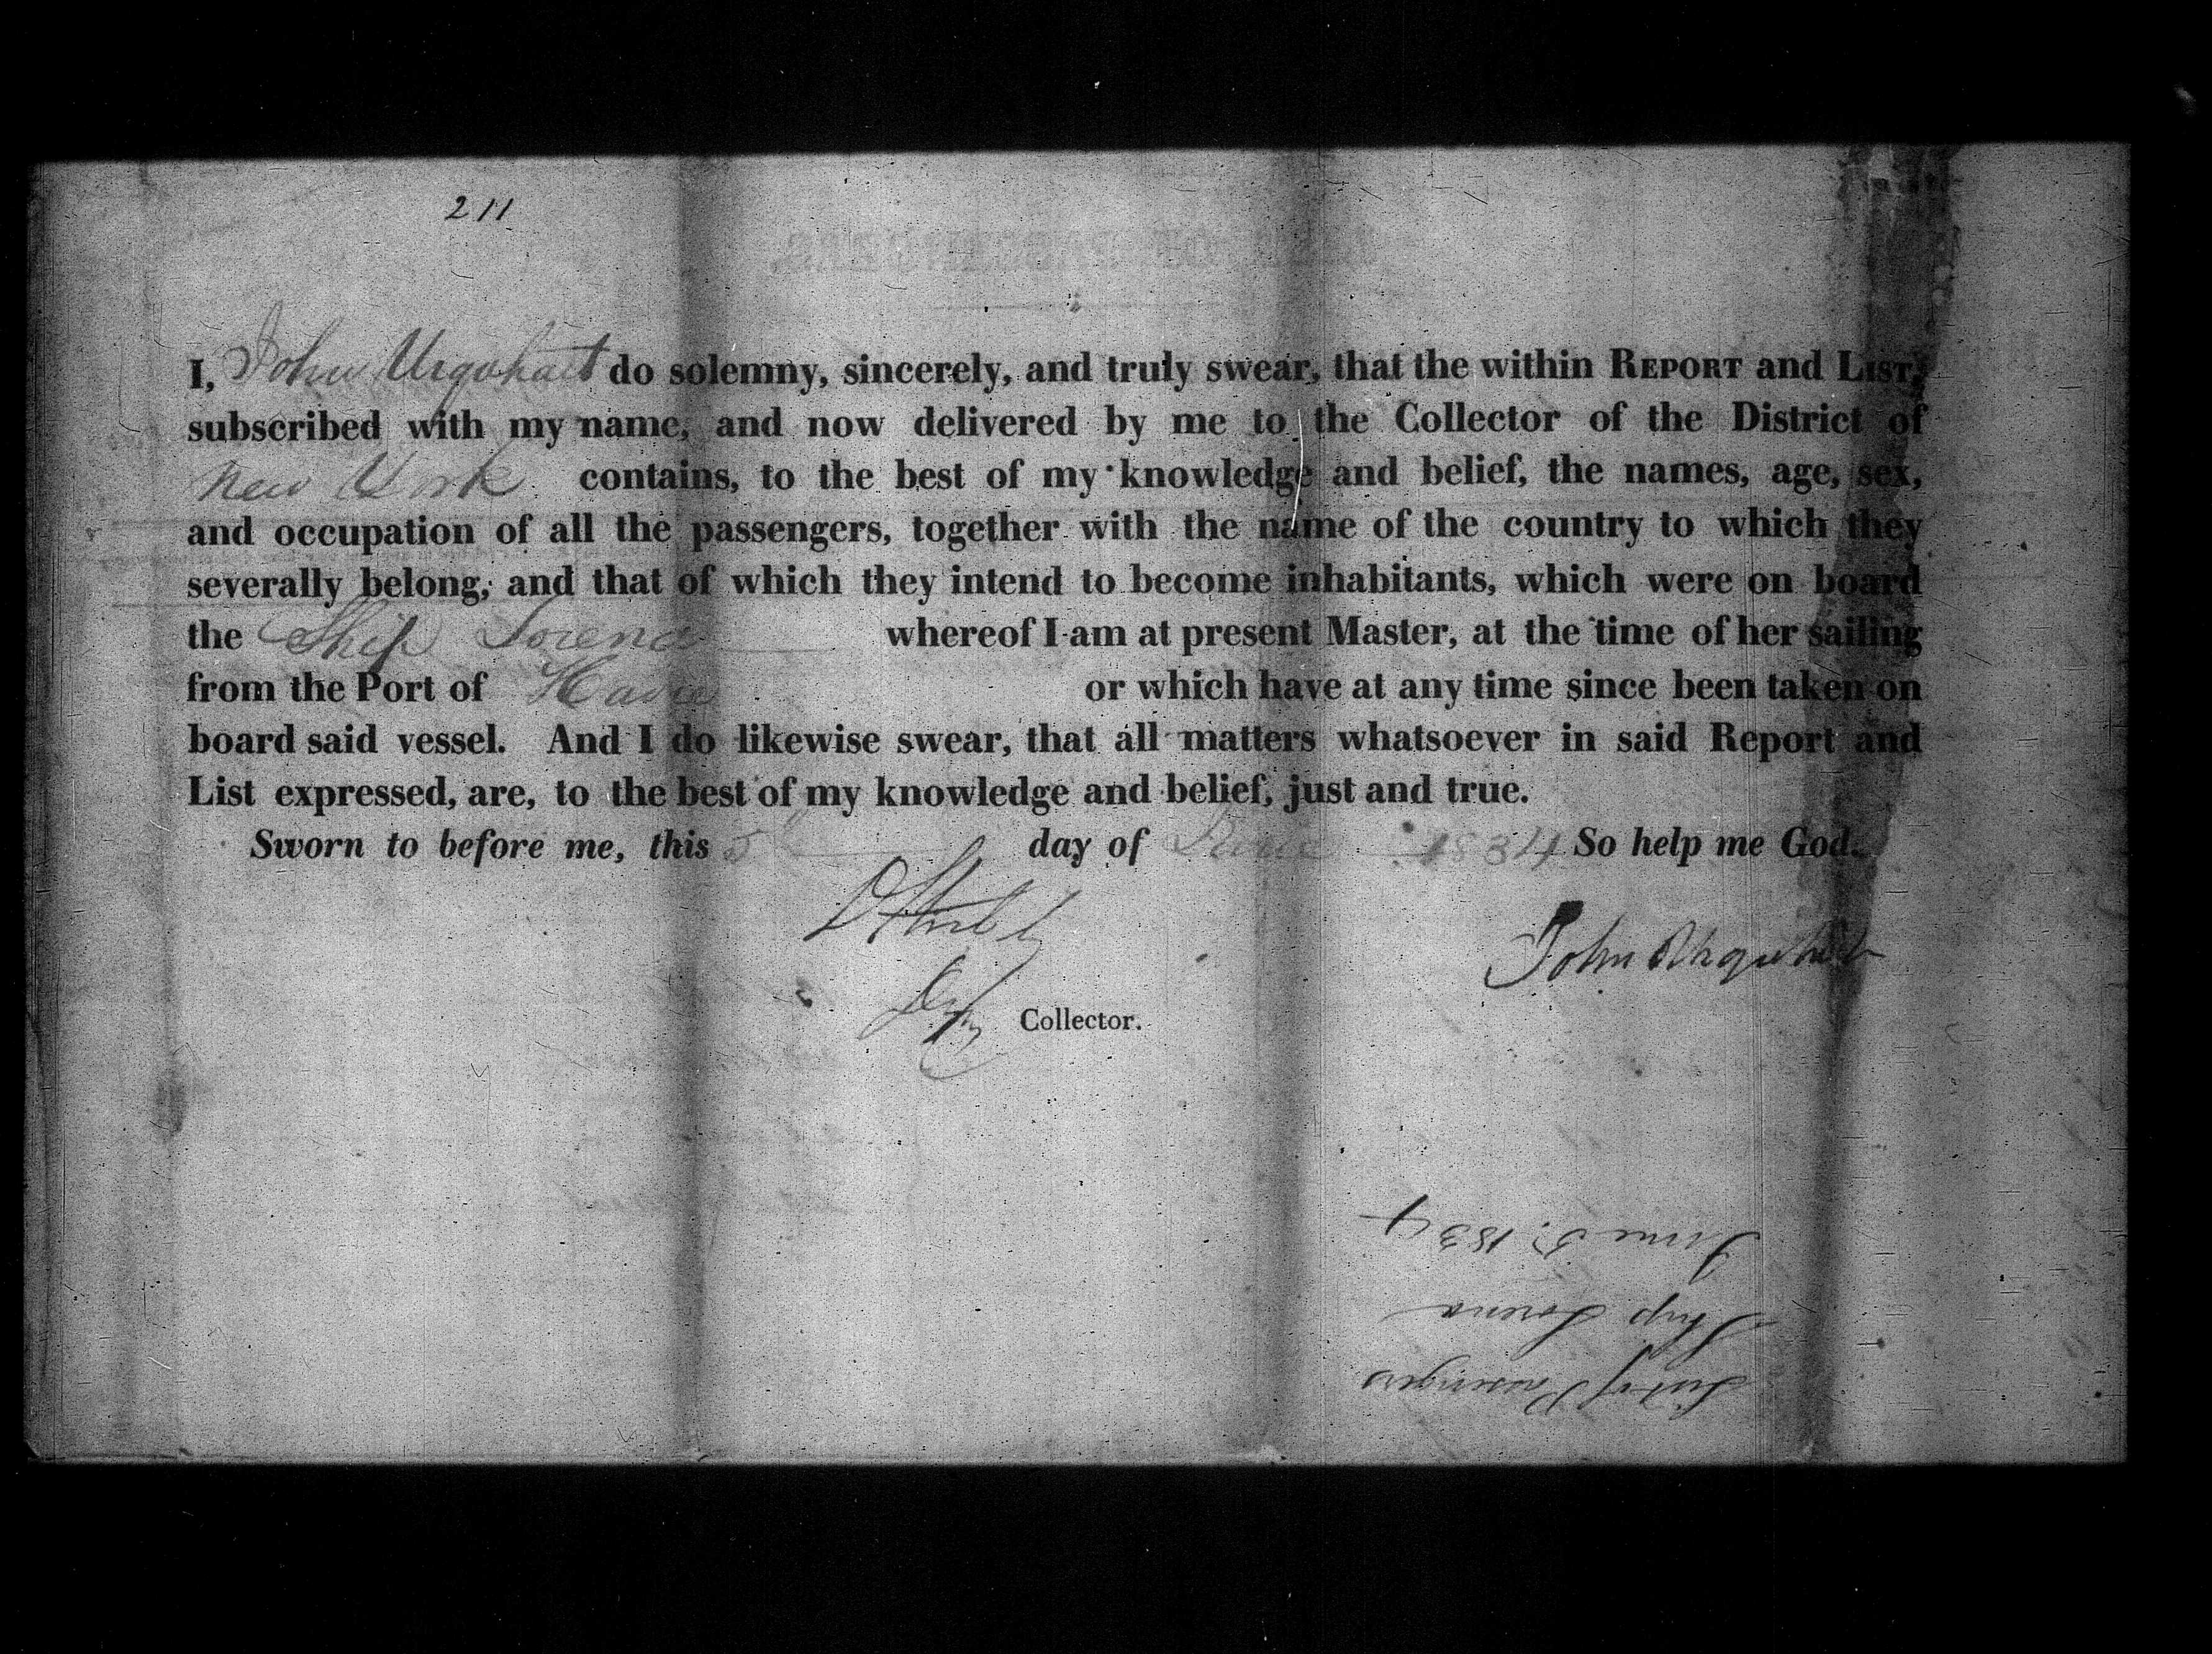 211
I, John Urquhart do solemny, sincerely, and truly swear, that the within REPORT and LIST,
subscribed with my name, and now delivered by me to the Collector of the District of
New York contains, to the best of my knowledge and belief, the names, age, sex,
and occupation of all the passengers, together with the name of the country to which they
severally belong, and that of which they intend to become inhabitants, which were on board
the Ship Lorena whereof I am at present Master, at the time of her sailing
from the Port of Havre or which have at any time since been taken on
board said vessel. And I do likewise swear, that all matters whatsoever in said Report and
List expressed, are, to the best of my knowledge and belief, just and true.
Sworn to before me, this 5 day of June 1834 So help me God.
John Urquhart
Collector.
List of Passengers
Ship Lorena
June 5. 1834